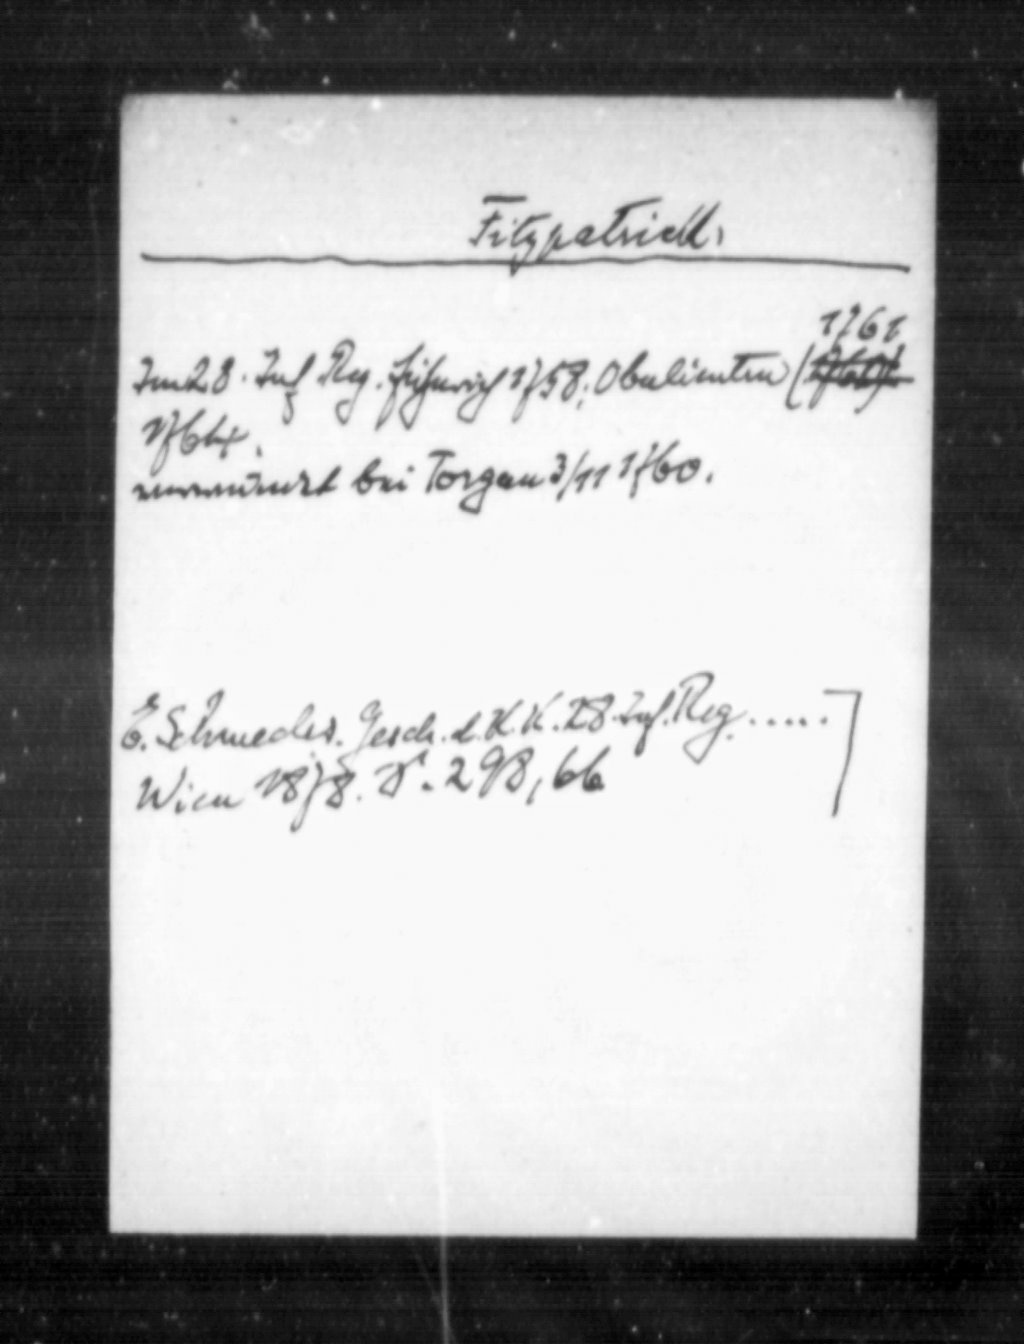 Fitzpatrick,
1761
Im 28. Inf Reg. Fähnrich 1758, Oberlieuten (
1764.
verwundet bei Torgau 3/11 1760.
E. Schmedes. Gesch. d. K. K. 28. Inf. Reg. .....
Wien 1878. S. 298, 66